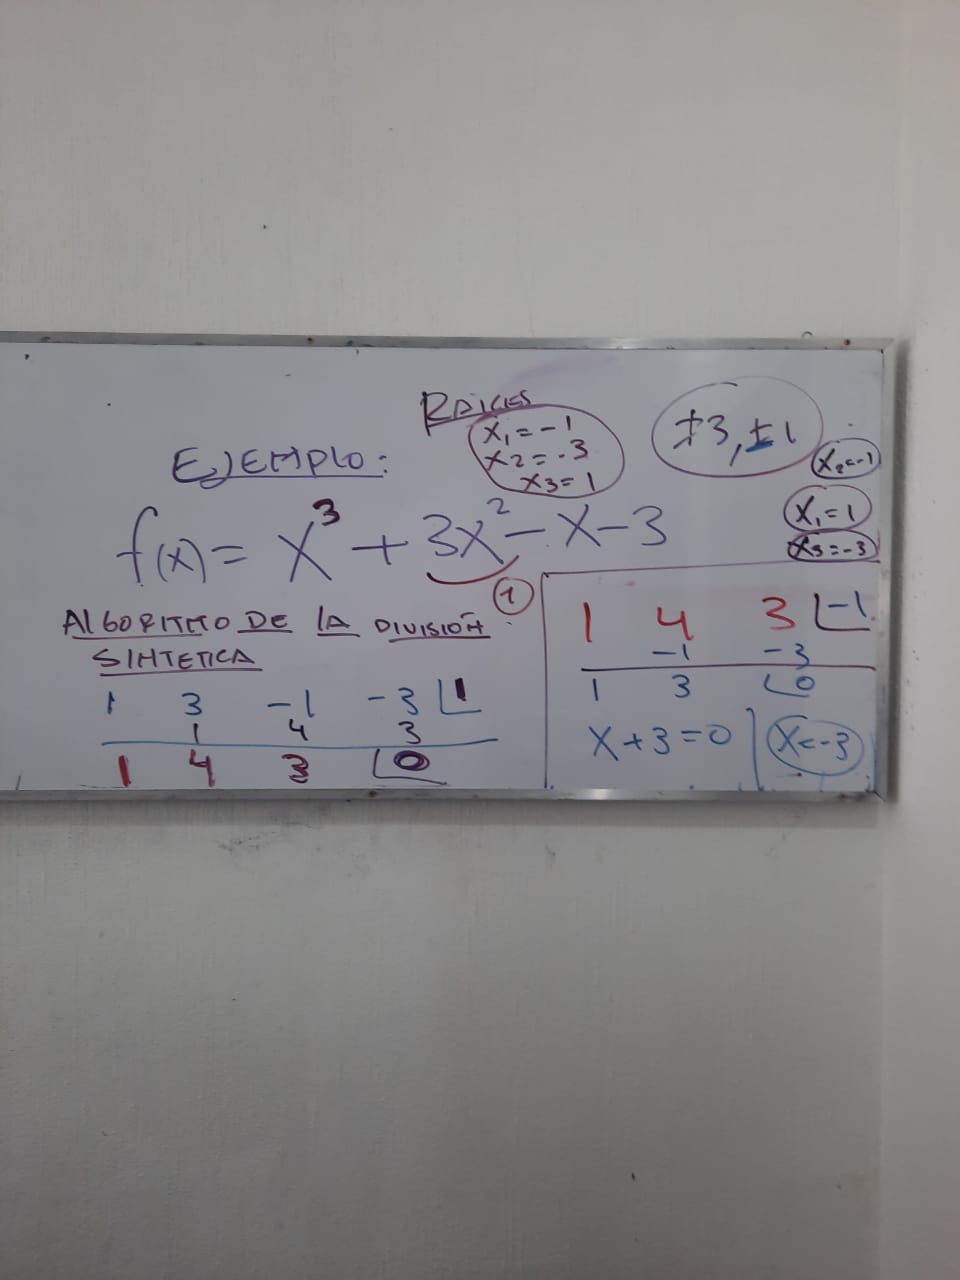 RAICES
x₁ = -1
x₂ = -3
x₃ = 1
±3, ±1
x₂=-1
x₁=1
x₃=-3
EJEMPLO:
f(x) = x³ + 3x² - x - 3
ALGORITMO DE LA DIVISIÓN
SINTETICA
1 3 -1 -3 |1
1 4 3
1 4 3 |0
1
1 4 3 |-1
-1 -3
1 3 |0
x+3=0 | x=-3